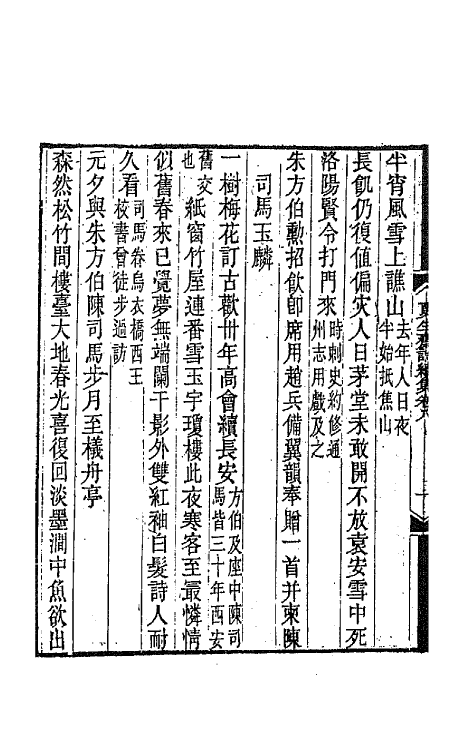 半宵風雪上譙山去年人日夜半始抵焦山
長飢仍復值偏灾人日茅堂未敢開不放袁安雪中死
洛陽賢令打門來時刺史約修通州志用戲及之
朱方伯勲招飲卽席用趙兵備翼韻奉贈一首并柬陳
司馬玉麟
一樹梅花訂古歡卅年高會續長安方伯及座中陳司馬皆三十年西安
舊交也紙窗竹屋連番雪玉宇瓊樓此夜寒客至最憐情
似舊春來已覺夢無端闌干影外雙紅袖白髮詩人耐
久看司馬眷烏衣橋西王校書曾徒步過訪
元夕與朱方伯陳司馬步月至檥舟亭
森然松竹間樓臺大地春光喜復回淡墨澗中魚欲出